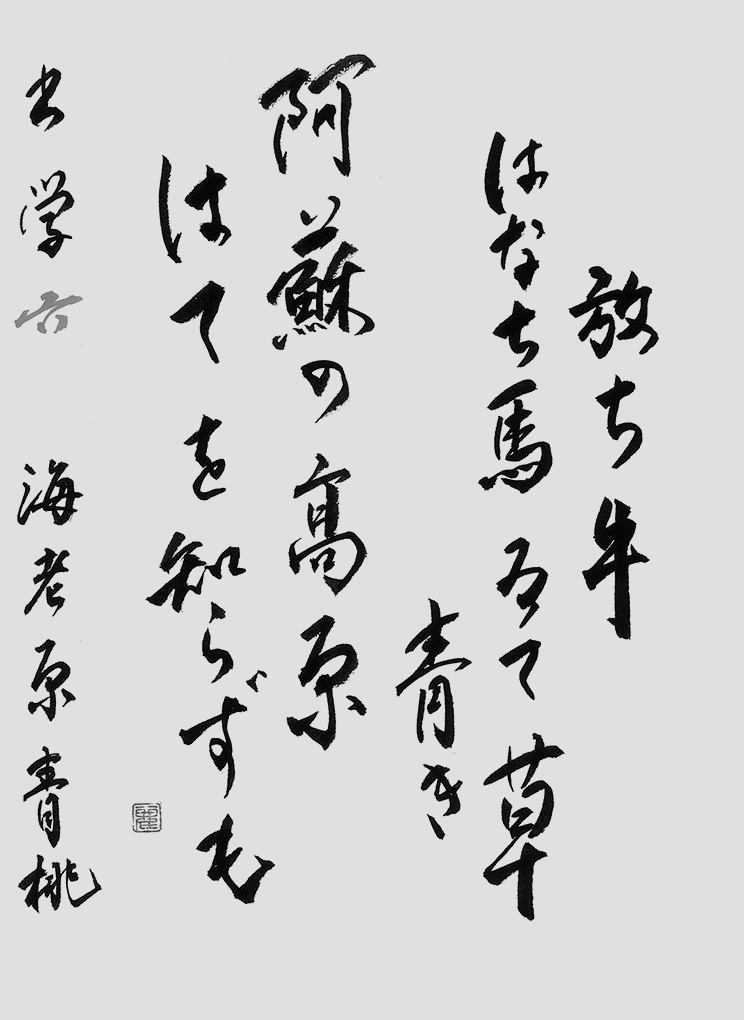 放ち牛
はなち馬ゐて草
青き
阿蘇の高原
はてを知らずも
書学六 海老原青桃